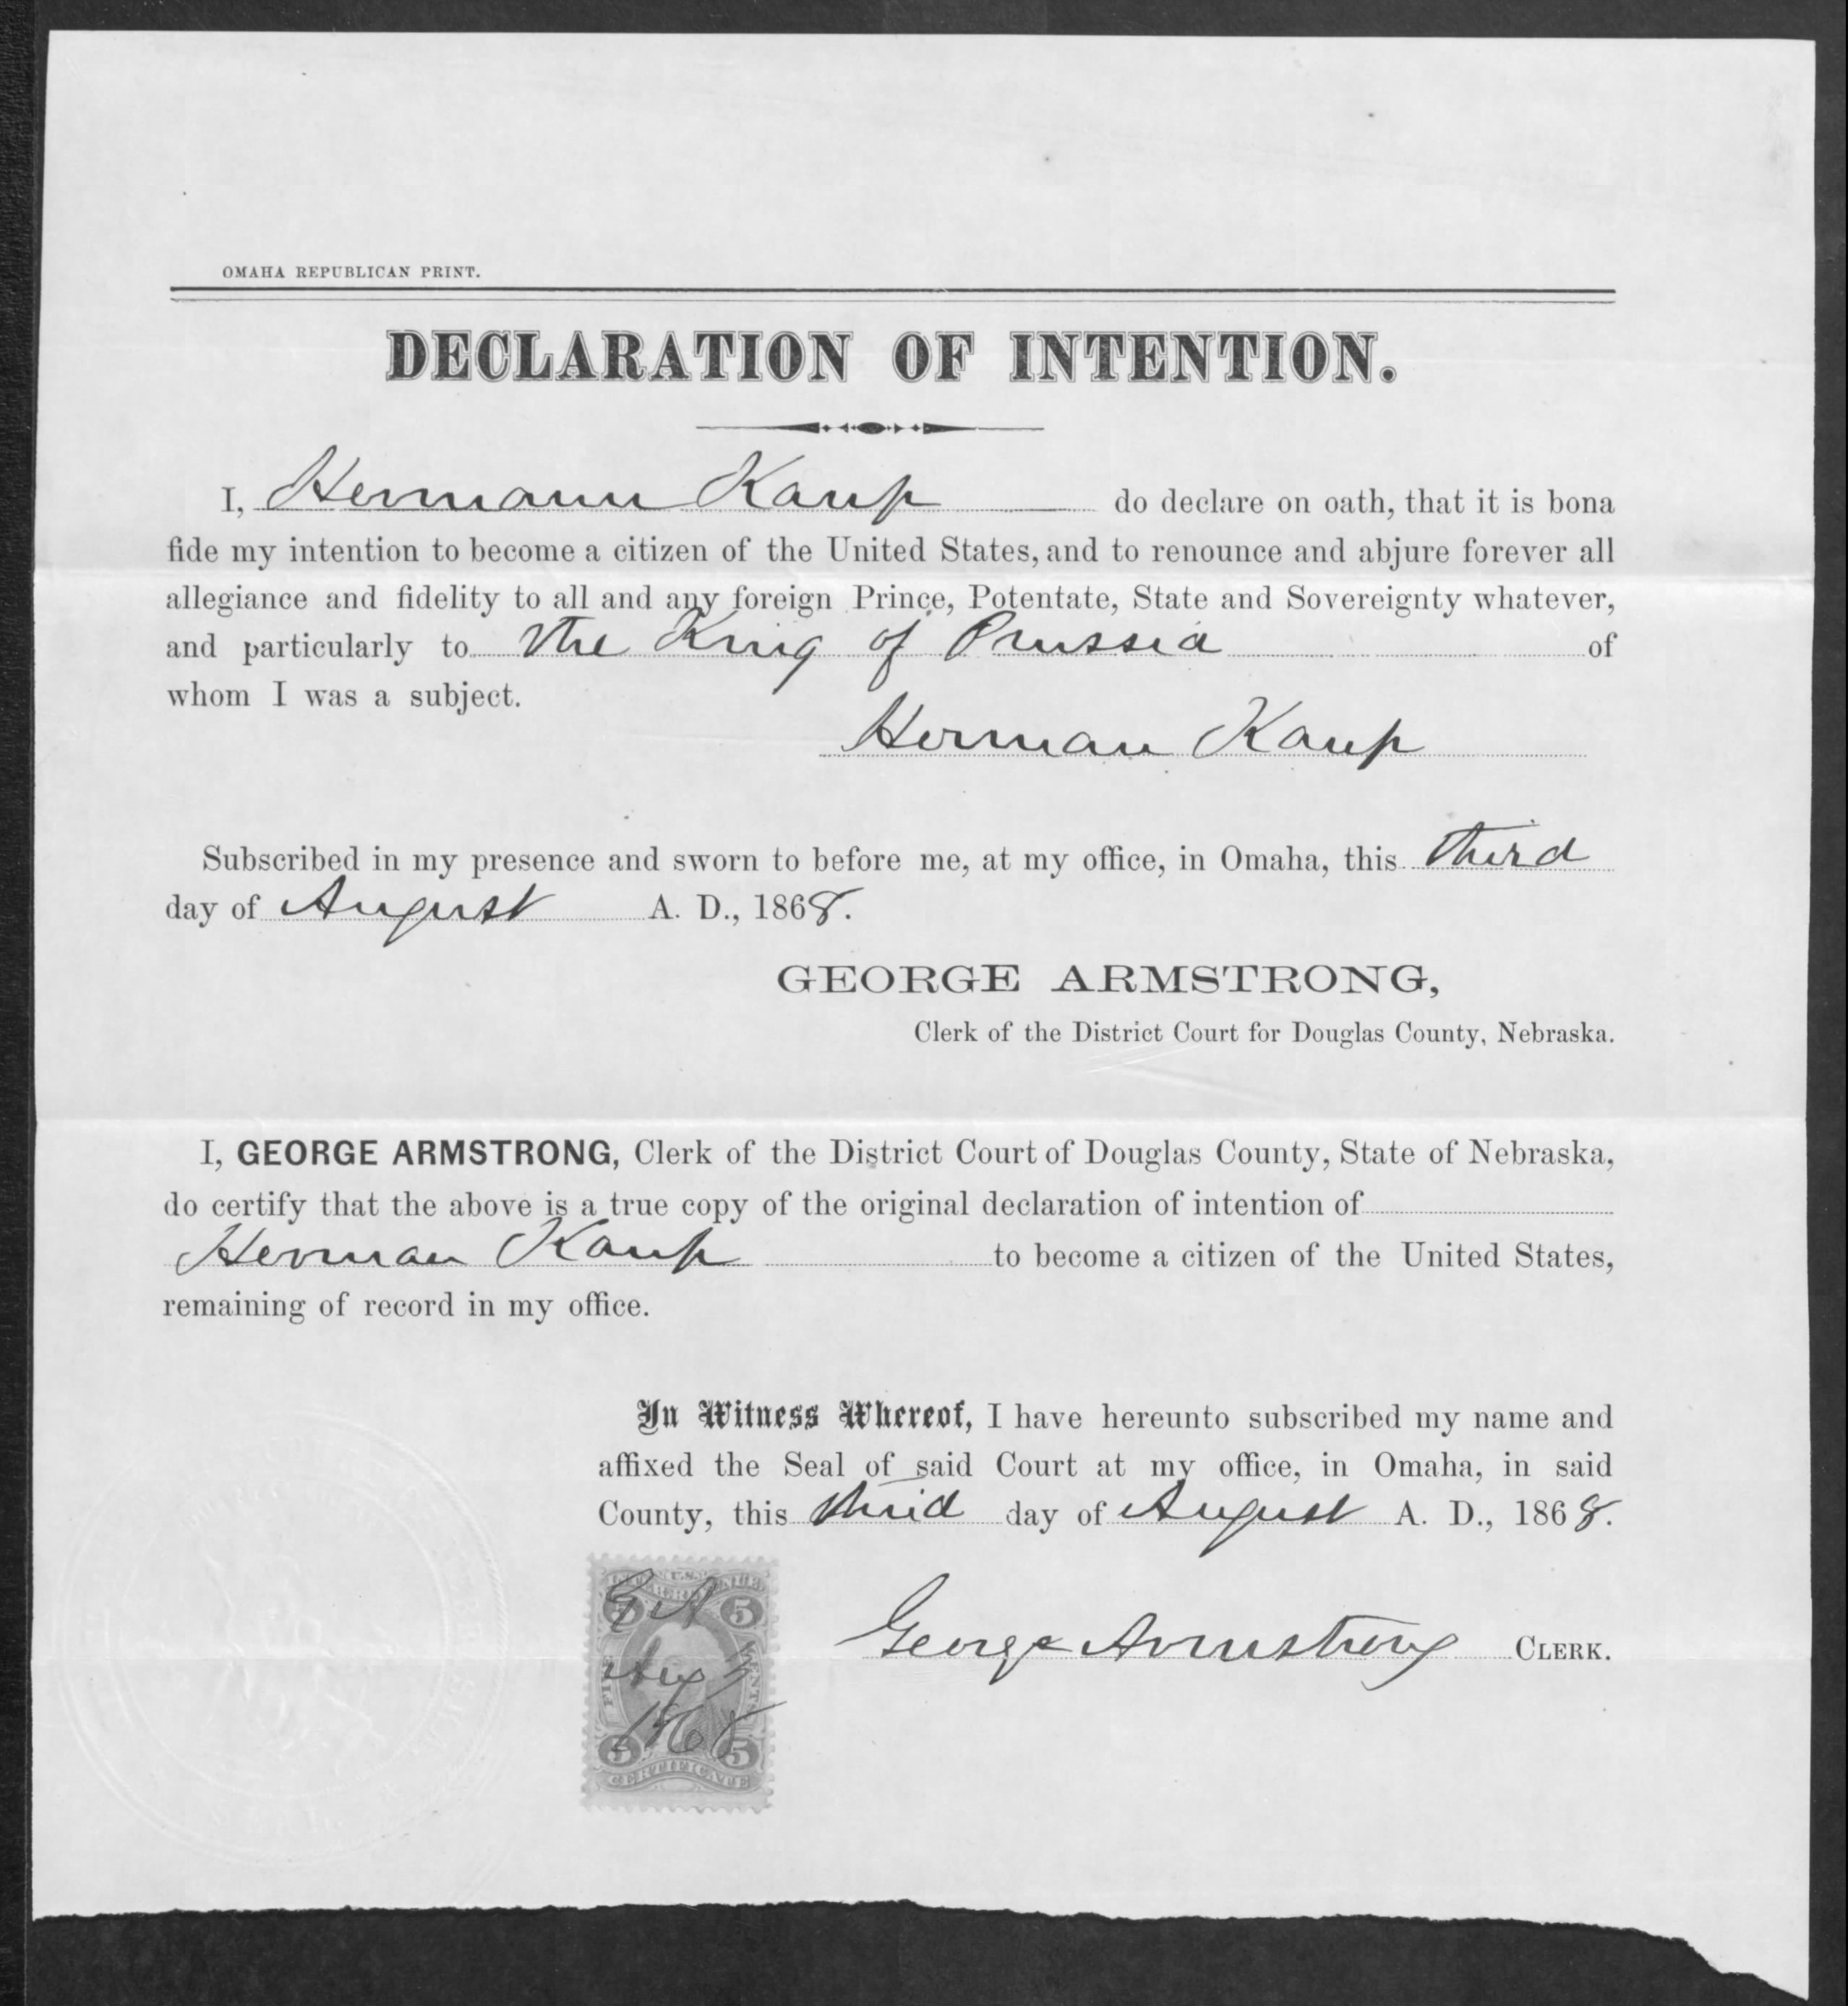 OMAHA REPUBLICAN PRINT.
DECLARATION OF INTENTION.
I, Hermann Kaup do declare on oath, that it is bona
fide my intention to become a citizen of the United States, and to renounce and abjure forever all
allegiance and fidelity to all and any foreign Prince, Potentate, State and Sovereignty whatever,
and particularly to the King of Prussia of
whom I was a subject.
Herman Kaup
Subscribed in my presence and sworn to before me, at my office, in Omaha, this third
day of August A. D., 1868.
GEORGE ARMSTRONG,
Clerk of the District Court for Douglas County, Nebraska.
I, GEORGE ARMSTRONG, Clerk of the District Court of Douglas County, State of Nebraska,
do certify that the above is a true copy of the original declaration of intention of
Herman Kaup to become a citizen of the United States,
remaining of record in my office.
In Witness Whereof, I have hereunto subscribed my name and
affixed the Seal of said Court at my office, in Omaha, in said
County, this third day of August A. D., 1868.
George Armstrong CLERK.
U.S.
INTER. REVENUE
5 G A 5
FIVE Aug 3 CENTS
1868
5 5
CERTIFICATE